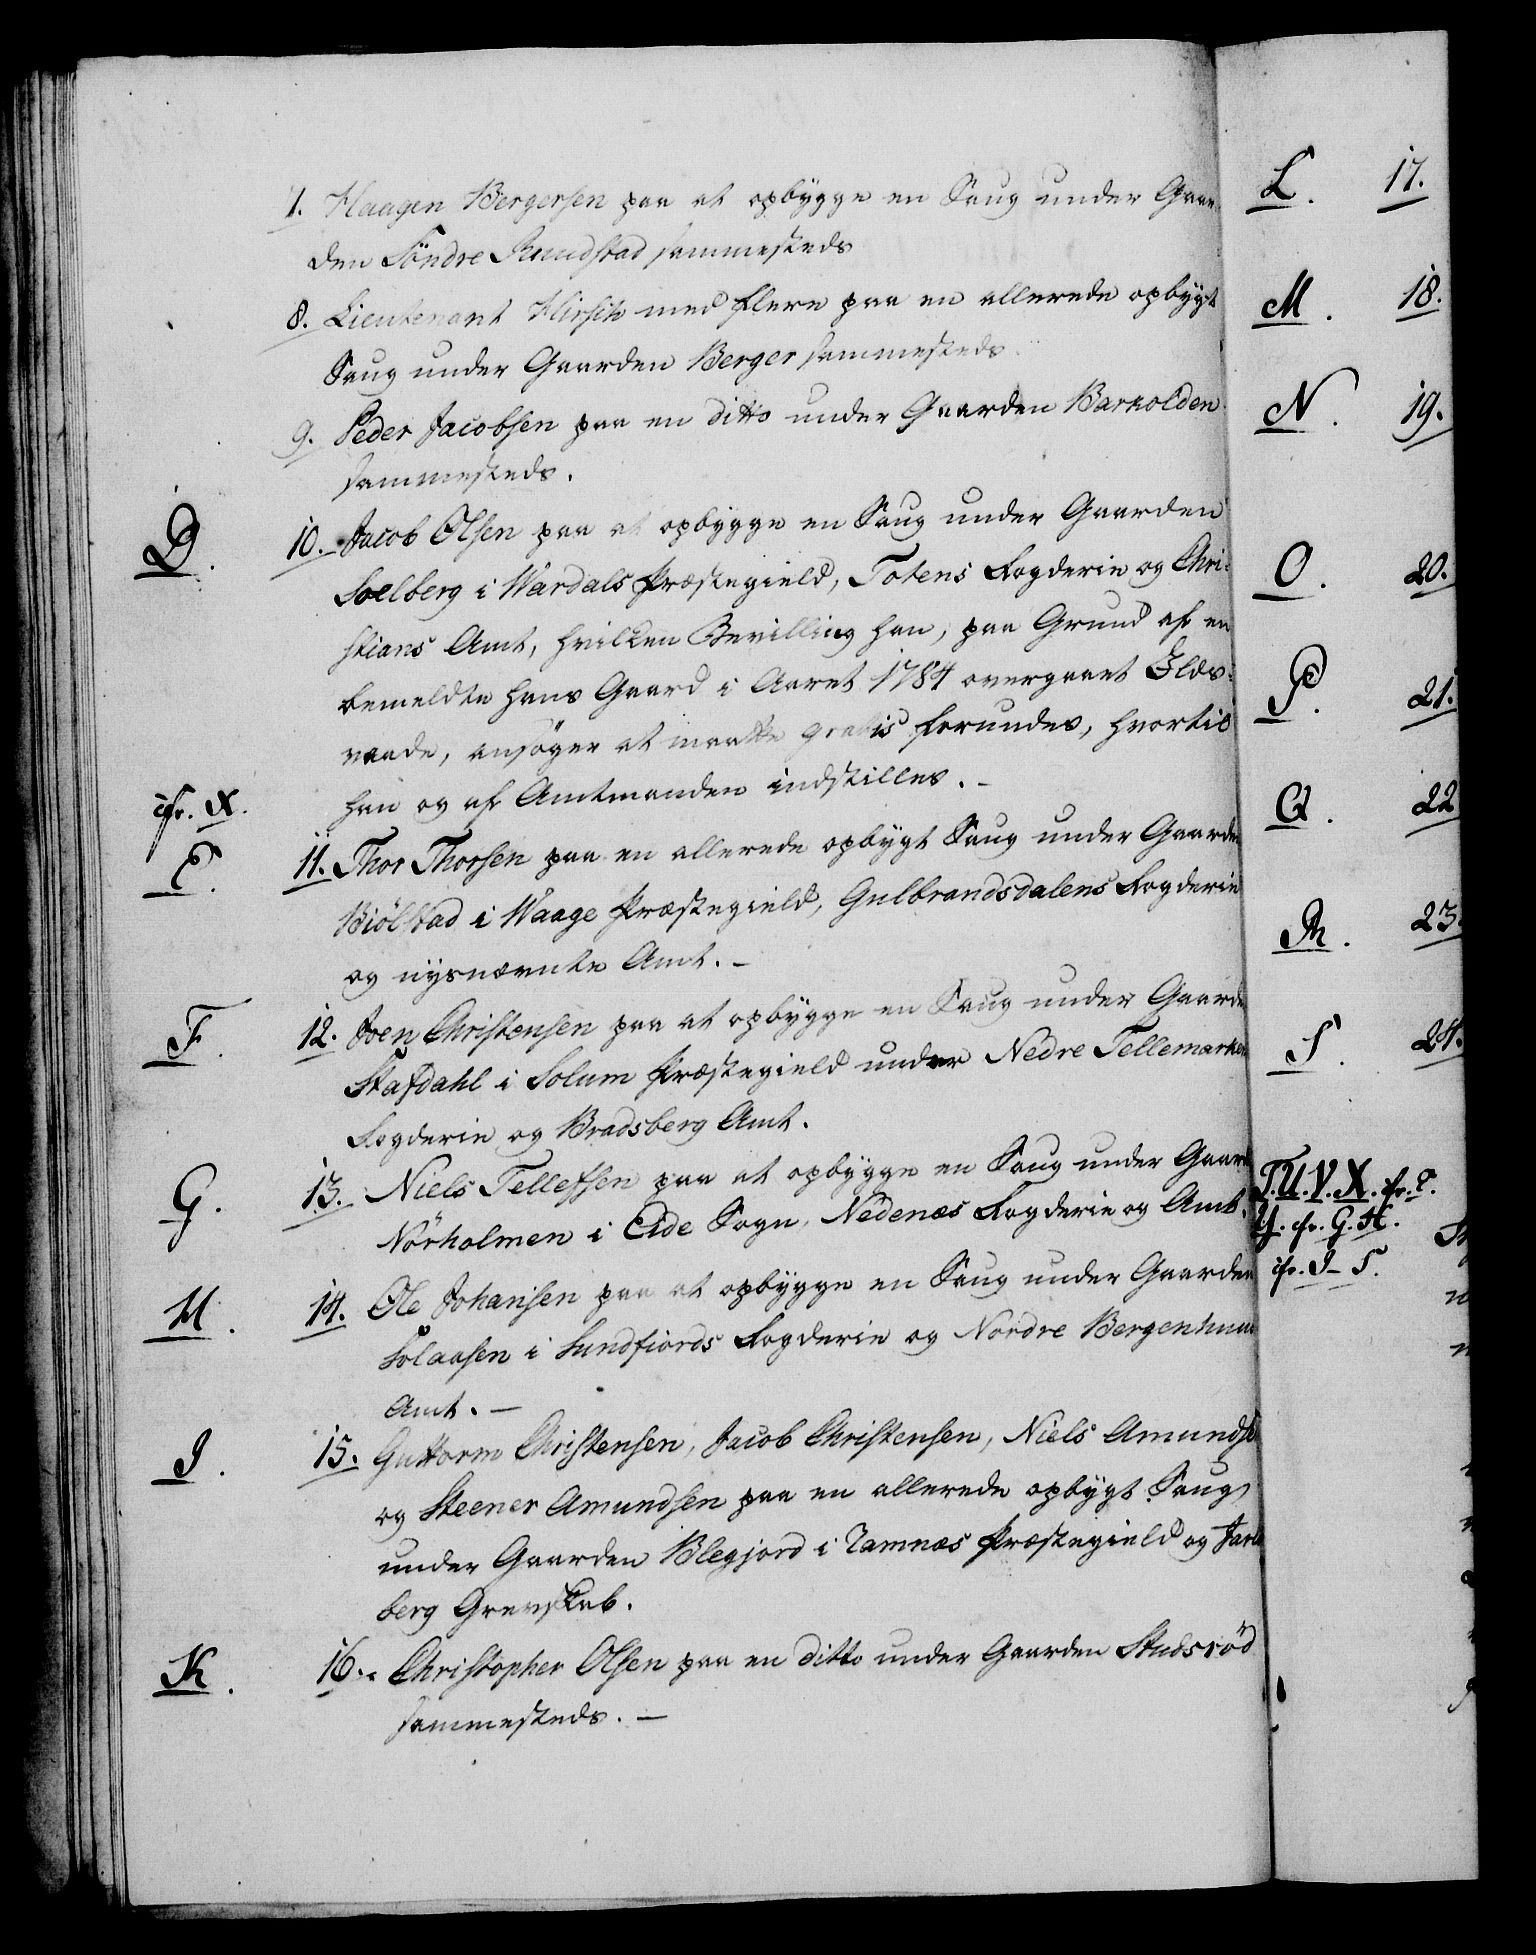 7. Haagen Bergersen paa at opbygge en Saug under Gaar-
den Söndre Rundstad sammesteds
8. Lieutenant Hirsch med flere paa en allerede opbygt
Saug under Gaarden Berger sammesteds.
9. Peder Jacobsen paa en ditto under Gaarden Barkolden
sammesteds.
D. 10. Jacob Olsen paa at opbygge en Saug under Gaarden
Soelberg i Wardals Præstegield, Totens Fogderie og Chri:
stians Amt, hvilken Bevilling han, paa Grund af en
bemeldte hans Gaard i Aaret 1784 overgaaet Ilds:
vaade, ansøger at maatte gratis forundes, hvortil
han og af Amtmanden indstilles. -
cfr. X.
E. 11. Thor Thorsen paa en allerede opbygt Saug under Gaarden
Biölstad i Waage Præstegield, Gulbrandsdalens Fogderie
og nysnævnte Amt. -
F. 12. Iven Christensen paa at opbygge en Saug under Gaarde
Stafdahl i Solum Præstegield under Nedre Tellemarken
Fogderie og Bradsberg Amt.
G. 13. Niels Tellefsen paa at opbygge en Saug under Gaard
Nörholmen i Eide Sogn, Nedenæs Fogderie og Amt.
H. 14. Ole Johansen paa at opbygge en Saug under Gaarden
Solaasen i Sundfiords Fogderie og Nordre Bergenhuus
Amt. -
I. 15. Guttorm Christensen, Jacob Christensen, Niels Amundse
og Steener Amundsen paa en allerede opbygt Saug
under Gaarden Blegjord i Ramnæs Præstegield og Jarls
berg Grevskab.
K. 16. Christopher Olsen paa en ditto under Gaarden Studsröd
sammesteds. -
L. 17.
M. 18.
N. 19.
O. 20.
P. 21.
Q. 22
R. 23.
S. 24.
T. U. V. X. cfr.
Y. cfr. G. H.
cfr. I-S.